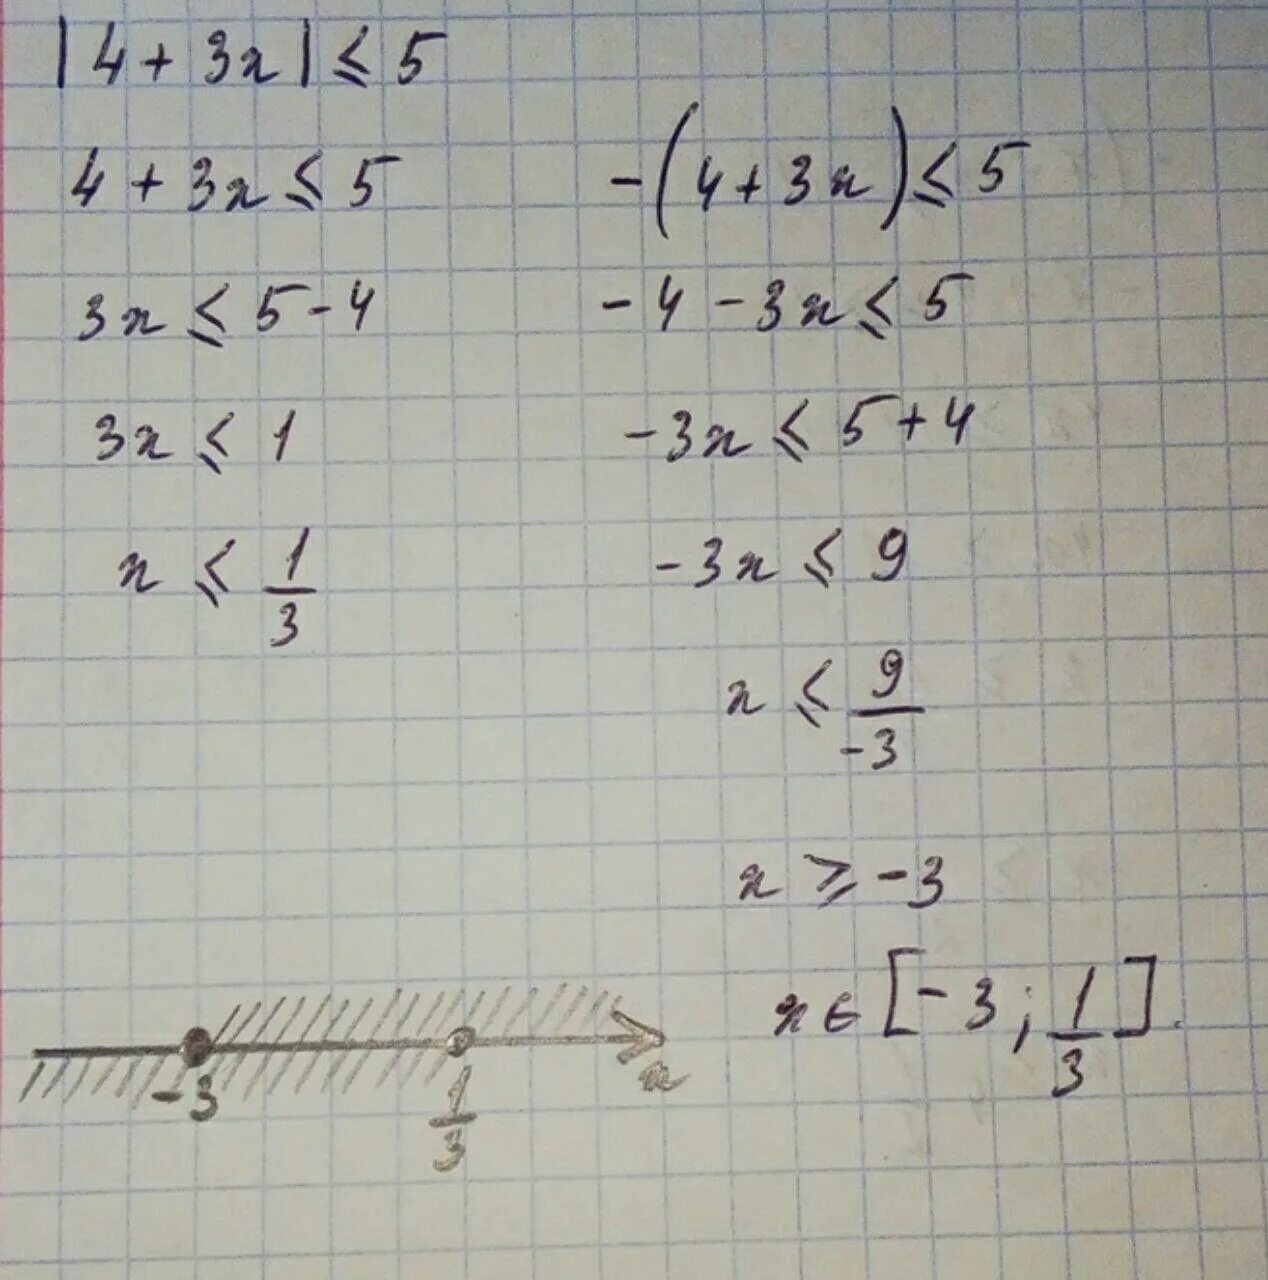 |4 + 3x| ≤ 5
4 + 3x ≤ 5
3x ≤ 5 - 4
3x ≤ 1
x ≤ 1/3
-(4 + 3x) ≤ 5
-4 - 3x ≤ 5
-3x ≤ 5 + 4
-3x ≤ 9
x ≤ 9/-3
x ≥ -3
x ∈ [-3; 1/3].
-3 1/3 x